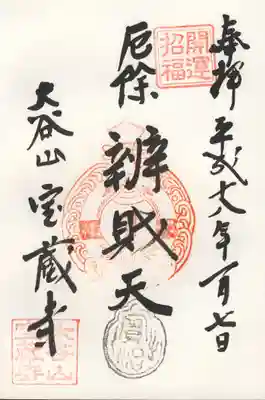 奉拝 平成十八年一月七日
開運招福
厄除 辨財天
大谷山 宝蔵寺